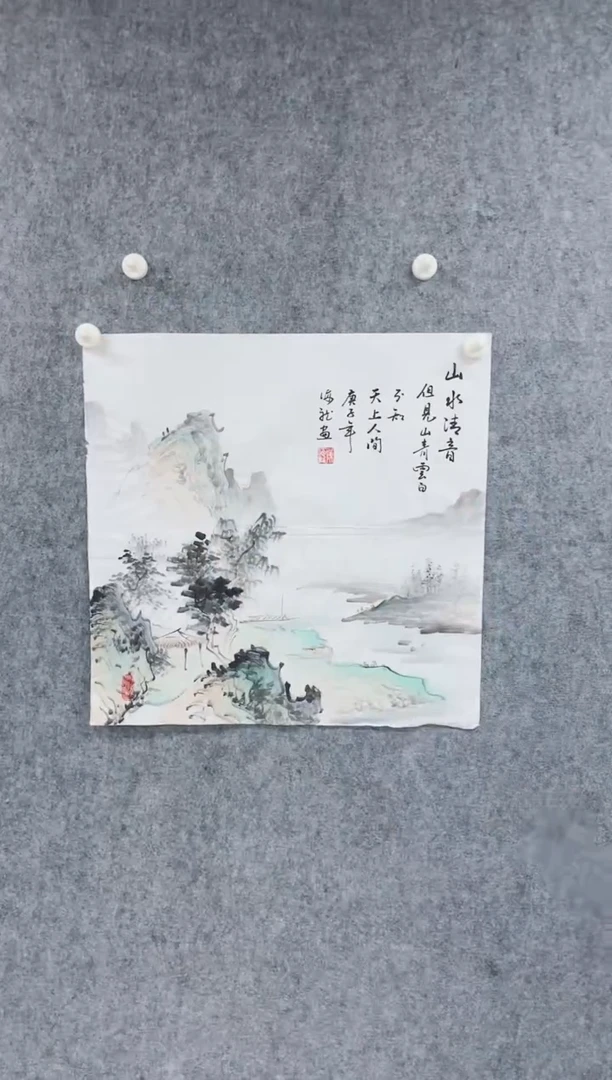 山水清音
但見山青雲白
不知
天上人间
庚子年
海龙画